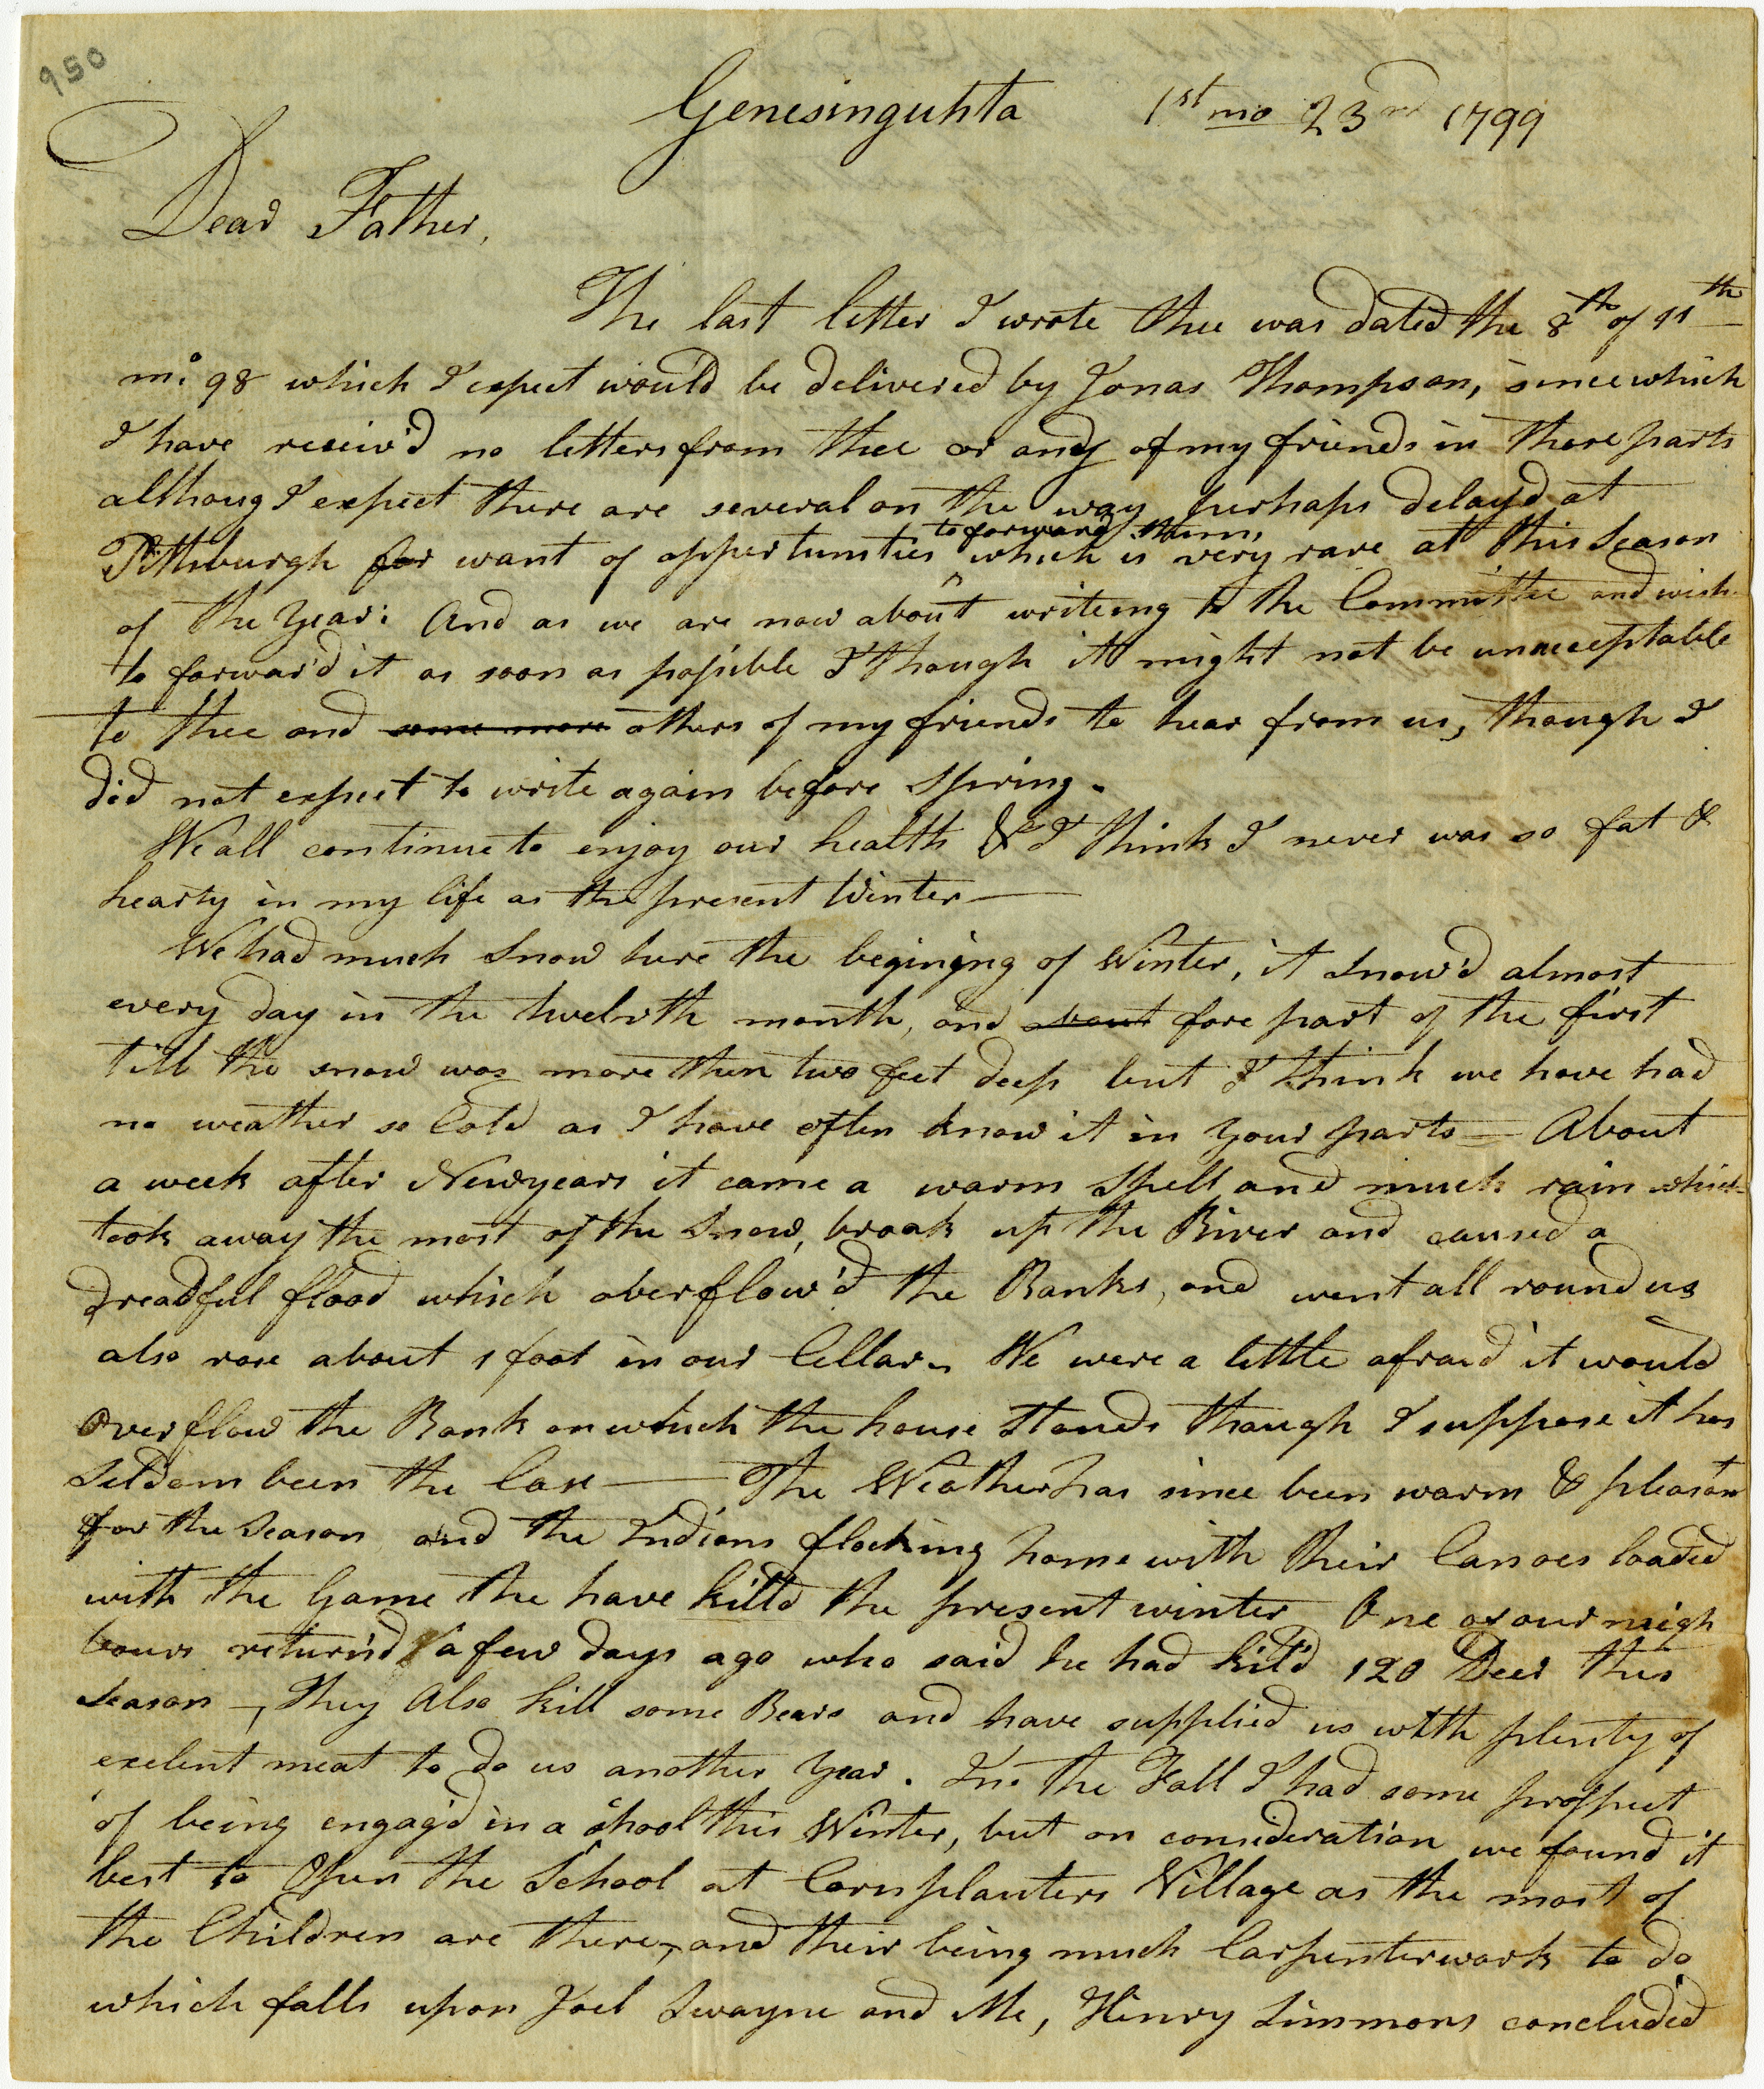 950
Genesinguhta 1st mo 23rd 1799
Dear Father,
The last letter I wrote thee was dated the 8th of 11th
mo 98 which I expect would be delivered by Jonas Thompson, since which
I have receiv'd no letters from thee or any of my friends in those parts
althoug I expect there are several on the way perhaps delay'd at
to forward them,
Pittsburgh for want of oppertunities ^ which is very rare at this Season
of the Year: And as we are now about writeing to the Committee and wish
to forwar'd it as soon as possible I though it might not be unacceptable
to thee and some more others of my friends to hear from us, though I
did not expect to write again before Spring.
We all continue to enjoy our health & I think I never was so fat &
hearty in my life as the present Winter—
We had much Snow here the begining of Winter, it Snow'd almost
every day in the twelvth month, and fore part of the first
till the snow was more then two feet deep but I think we have had
no weather so Cold as I have often know it in your parts — About
a week after Newyears it came a warm Spell and much rain which
took away the most of the Snow, broak up the River and caused a
dreadful flood which overflow'd the Banks, and went all round us
also rose about 1 foot in our Cellar. We were a little afraid it would
Overflow the Bank on which the house Stands though I suppose it has
Seldom been the Case — The Weather has since been warm & pleasan
for the Season and the Indians flocking home with their Canoes loaded
with the Game the have kill'd the present winter One of our neigh
bours return'd a few days ago who said he had kil'd 120 Deer this
Season —, they Also kill some Bears and have supplied us with plenty of
exelent meat to do us another Year. In the Fall I had some prospect
of being engag'd in a shool this Winter, but on consideration we found it
best to Open the School at Cornplanters Village as the most of
the Children are there, and their being much Carpenterwork to do
which falls upon Joel Swayne and Me, Henry Simmons concluded